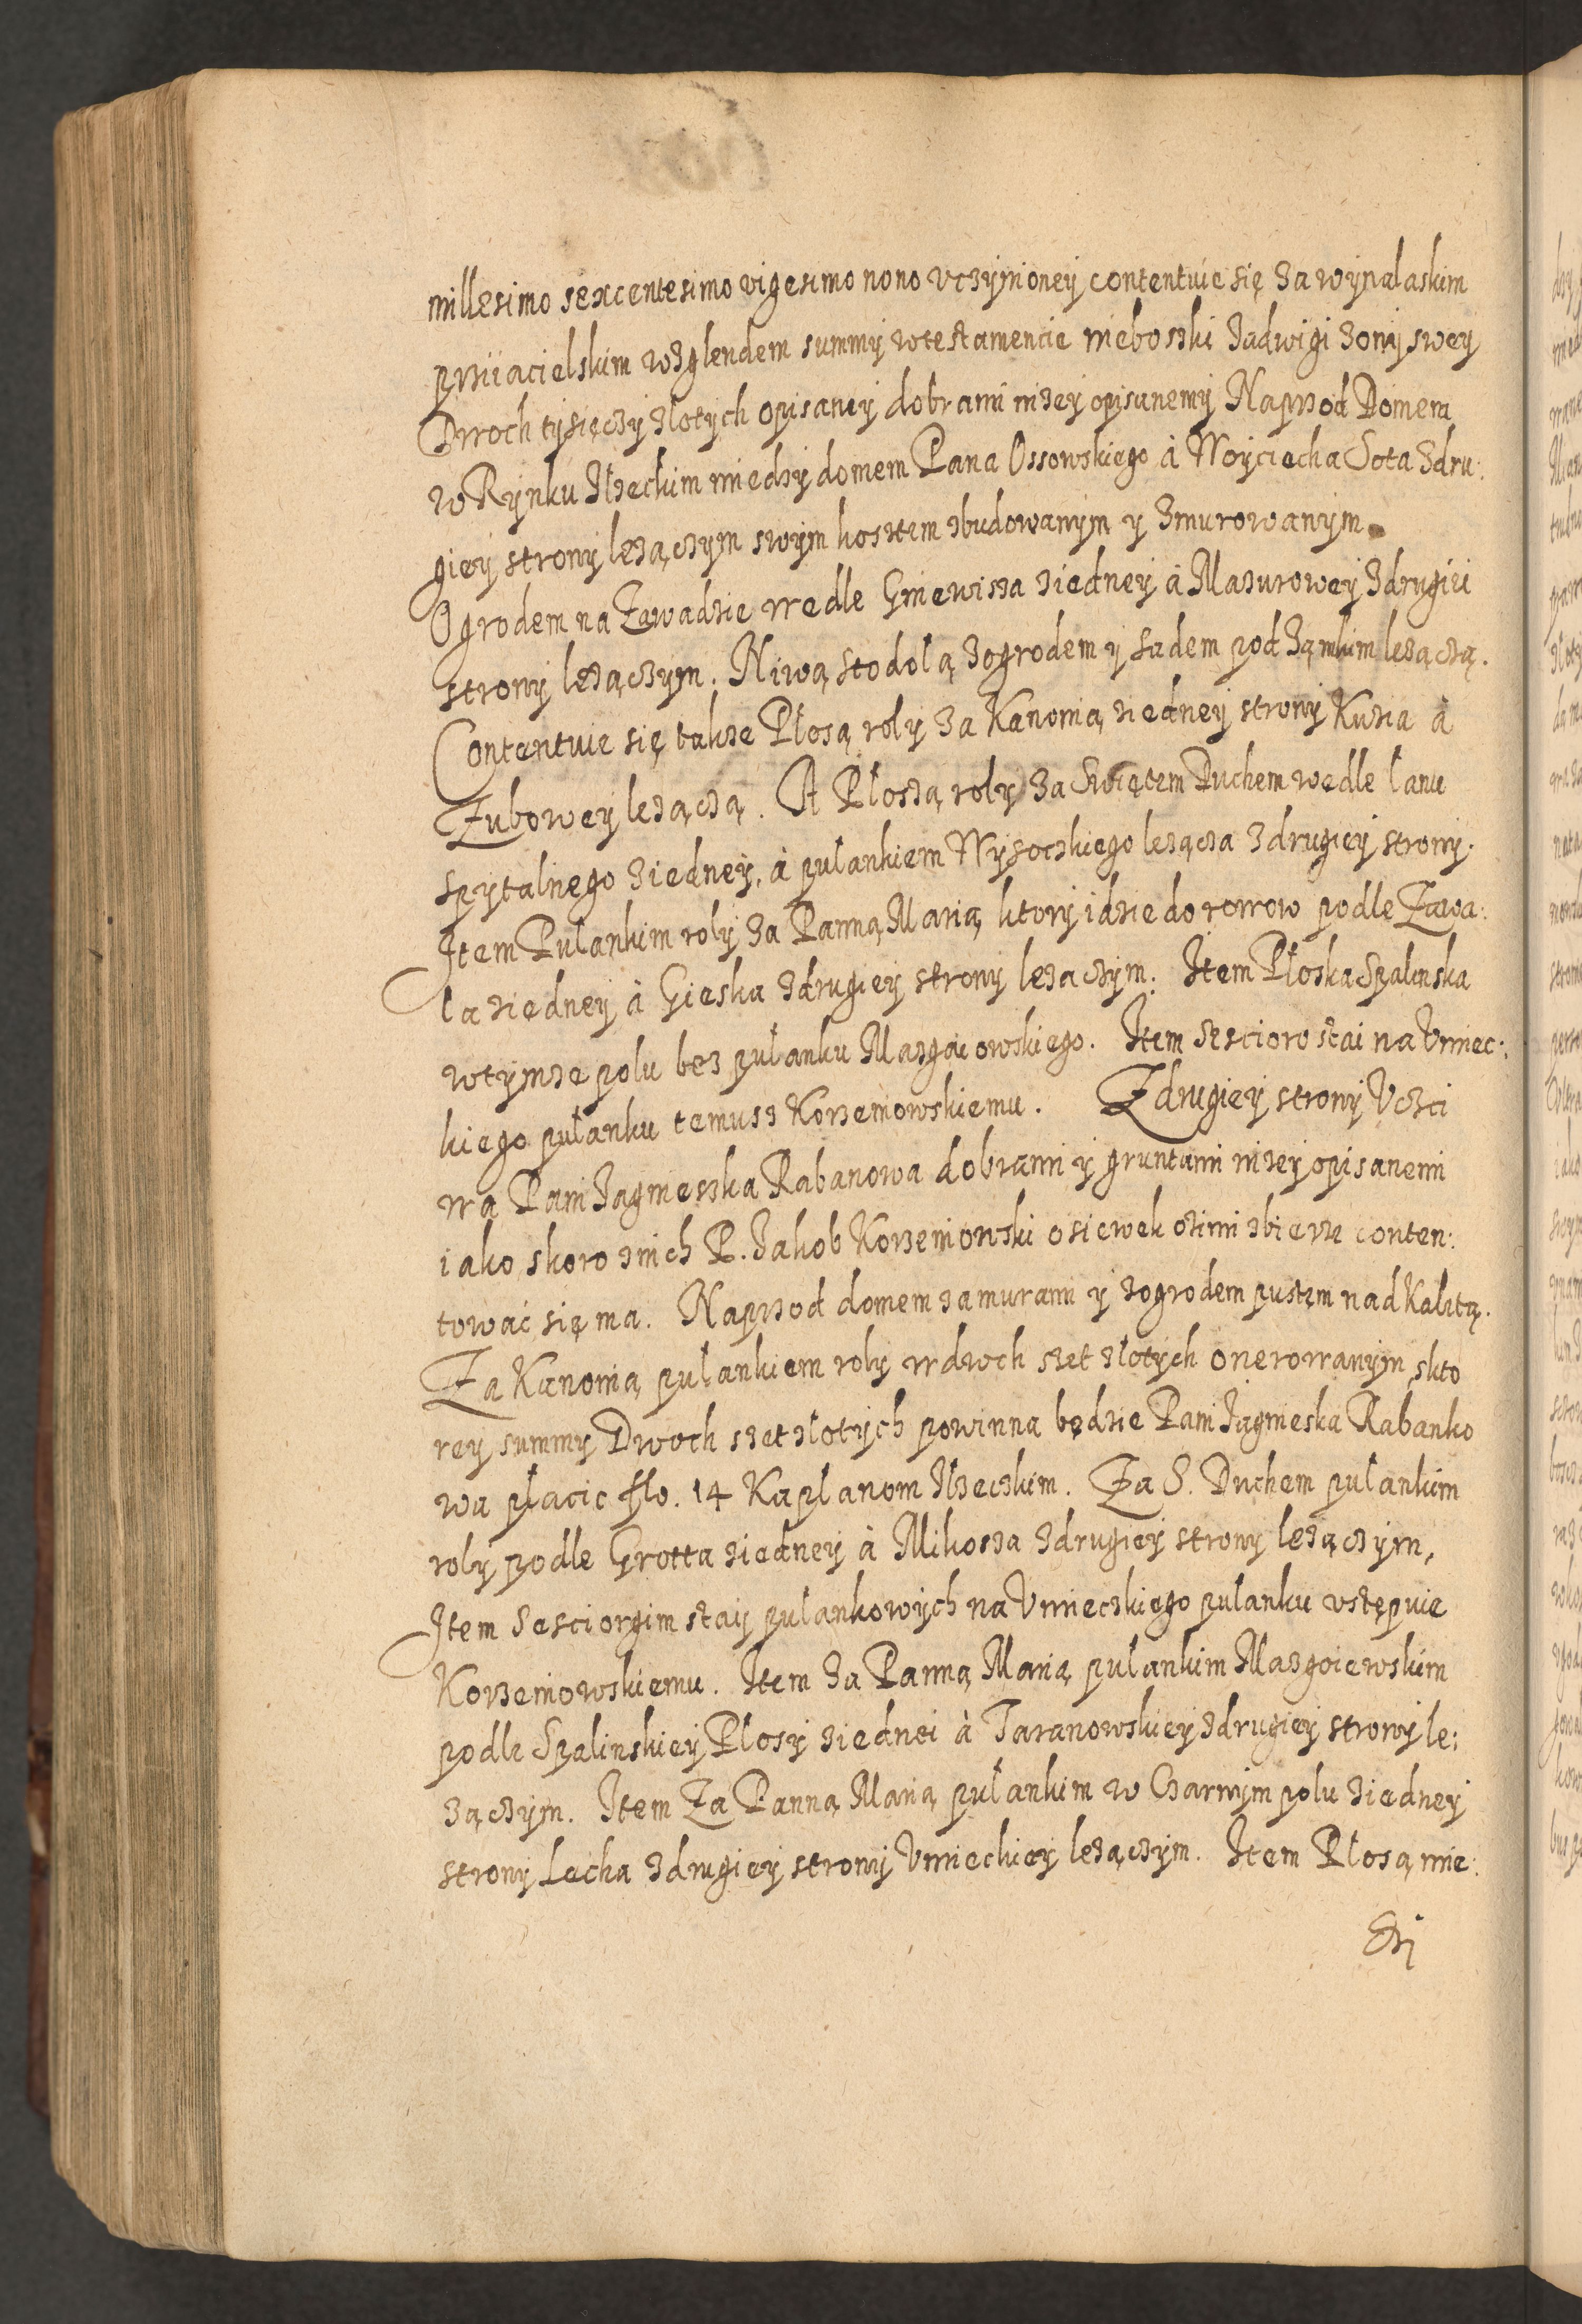 millesimo sexcentesimo vigesimo nono vczÿnioneÿ contentuie się za wÿnalaskim
prziiacielskim wzglendem summÿ w testamencie nieboszki Jadwigi żonÿ sweÿ
Dwoch tÿsięczÿ złotÿch opisaneÿ dobrami niżeÿ opisanemÿ Naprzod Domem
w Rÿnku Iłzeckim miedzÿ domem Pana Ossowskiego à Woÿciecha Sota zdru:
gieÿ stronÿ leżączÿm swÿm kosztem zbudowanÿm y zmurowanÿm.
Ogrodem na Zawadzie wedle Gniewisza ziedneÿ à Mazuroweÿ zdrugiei
stronÿ leżączÿm. Niwą stodolą zogrodem y sadem pod Zamkim leżączą.
Contentuie się takze Płosą rolÿ za Kanonią ziedneÿ stronÿ Kuzia à
Zuboweÿ leżączą. A Płoszą rolÿ za Swiętem Duchem wedle łanu
szpÿtalnego ziedneÿ, à pułankiem Wÿsoczkiego leżącza zdrugieÿ stronÿ.
Item Pułankim rolÿ za Panną Marią ktorÿ idzie do rowow podle Zawa:
la ziedneÿ à Gieska zdrugieÿ stronÿ leżaczÿm. Item Płoska Szalinska
wtÿmze polu bez pułanku Mazgaiowskiego. Item Szescioro stai na Vmiec:
kiego pułanku temusz Korzeniowskiemu. Zdrugieÿ stronÿ Vczci
wa Pani Jagnieszka Rabanowa dobrami ÿ gruntami niżeÿ opisanemi
iako skoro znich P. Jakob Korzeniowski osiewek ozimi zbierze conten:
tować się ma. Naprzod domem za murami y zogrodem pustem nad Kalitą.
Za Kanonią pułankiem rolÿ w dwoch szet złotÿch onerowanÿm, skto
reÿ summÿ Dwoch szet złotÿch powinna będzie Pani Jagnieska Rabanko
wa płacic flo. 14 Kapłanom Iłzeczkim. Za S. Duchem pułankim
rolÿ podle Grotta ziedneÿ à Mikosza zdrugieÿ stronÿ leżączÿm,
Item Sesciorgim staÿ pułankowÿch na Vmieczkiego pułanku vstępuie
Korzeniowskiemu. Item Za Panną Marią pułankim Mazgoiewskim
podle Szalinskieÿ Płosÿ ziednei à Taranowskieÿ zdrugieÿ stronÿ le:
żączÿm. Item Za Panną Marią pułankim w Czarnÿm polu ziedneÿ
stronÿ Lecha zdrugieÿ stronÿ Vmieckieÿ leżączÿm. Item Płosą mie: